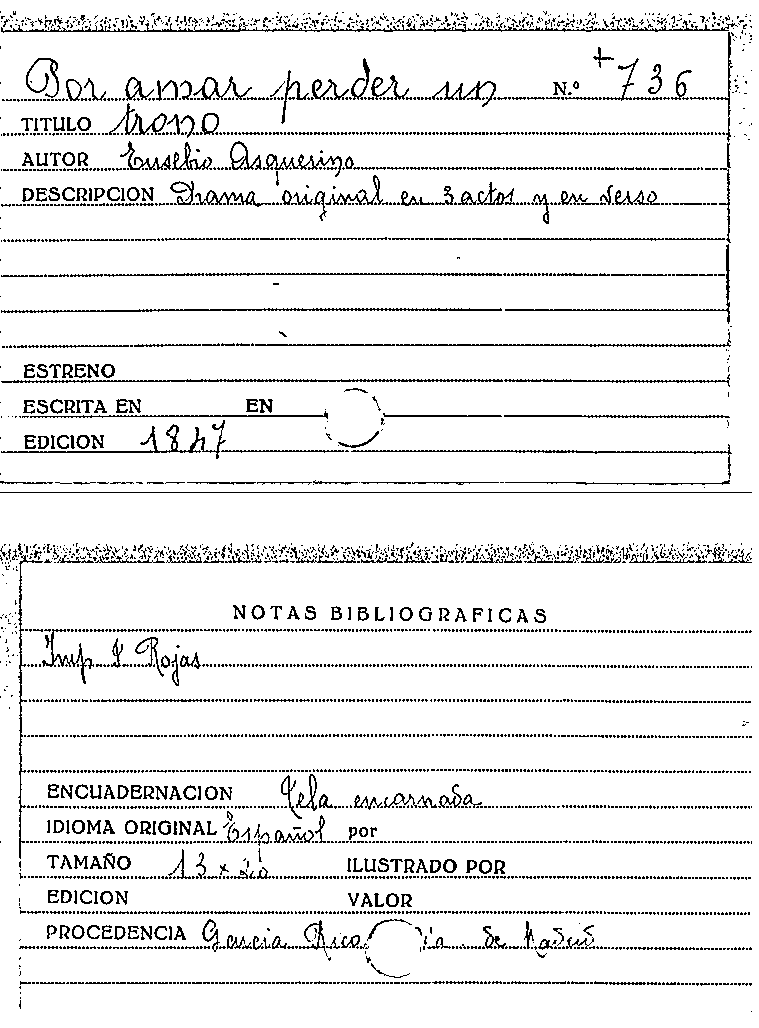 Por amar perder un N.º +736
TITULO trono
AUTOR Eusebio Asquerino
DESCRIPCION Drama original en 3 actos y en verso
ESTRENO
ESCRITA EN EN
EDICION 1847
NOTAS BIBLIOGRAFICAS
Imp Rojas
ENCUADERNACION Tela encarnada
IDIOMA ORIGINAL Español por
TAMAÑO 13 x 20 ILUSTRADO POR
EDICION VALOR
PROCEDENCIA Garcia Rico ia de Madrid